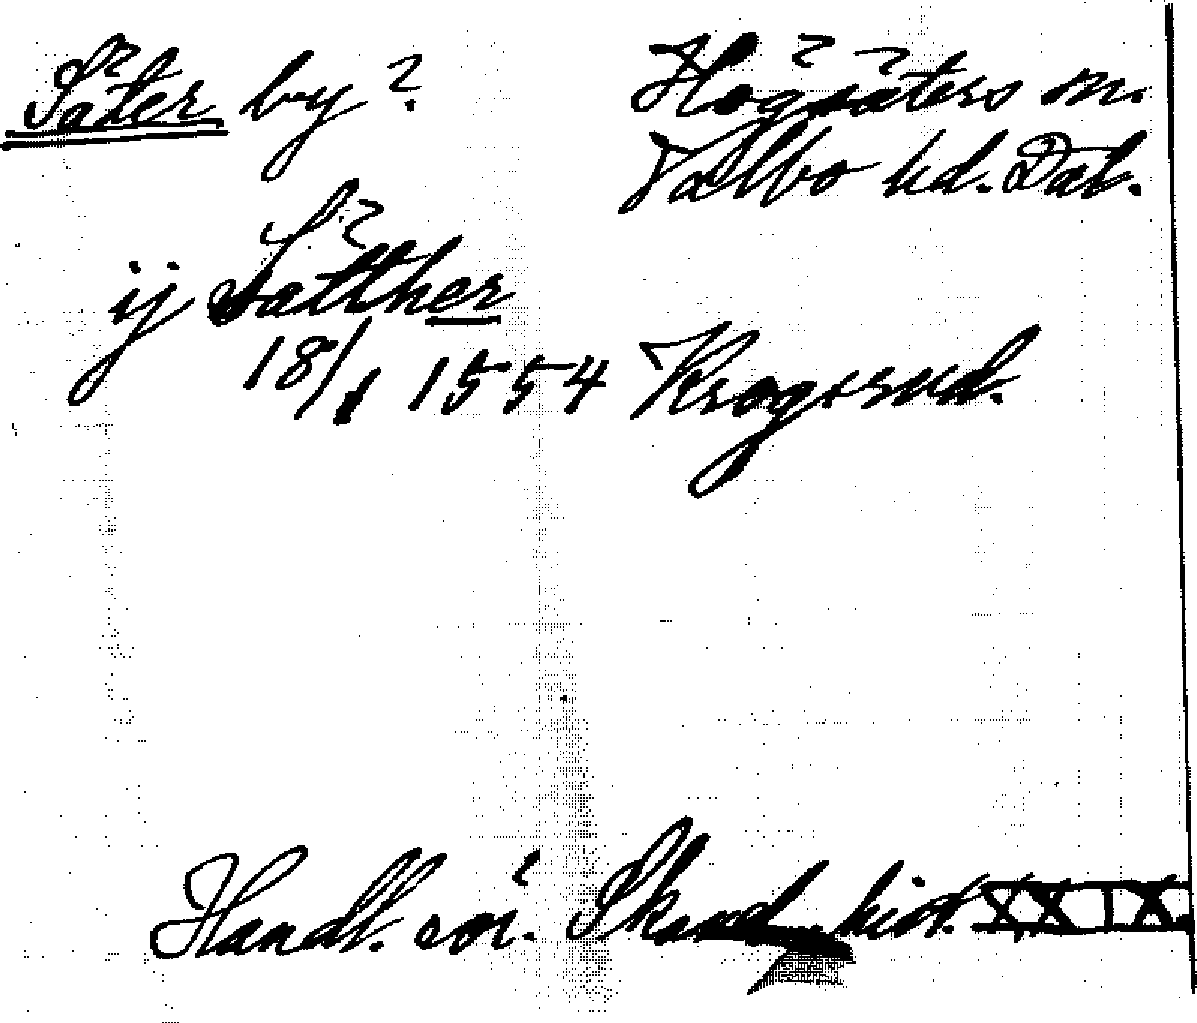 Säter by?
Högsäters sn.
Valbo hd. Dal.
ij Sätther
18/1 1554 Krogsrud.
Handl. rör. Skand. hist. XXIX